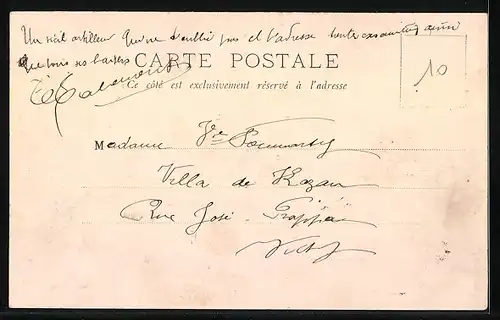 Un vieil artilleur qui ne t'oublie pas et t'adresse toute
que tous ses baisers
CARTE POSTALE
Ce côté est exclusivement réservé à l'adresse
10
Madame Vve
Villa de Kazan
Rue José
Vichy